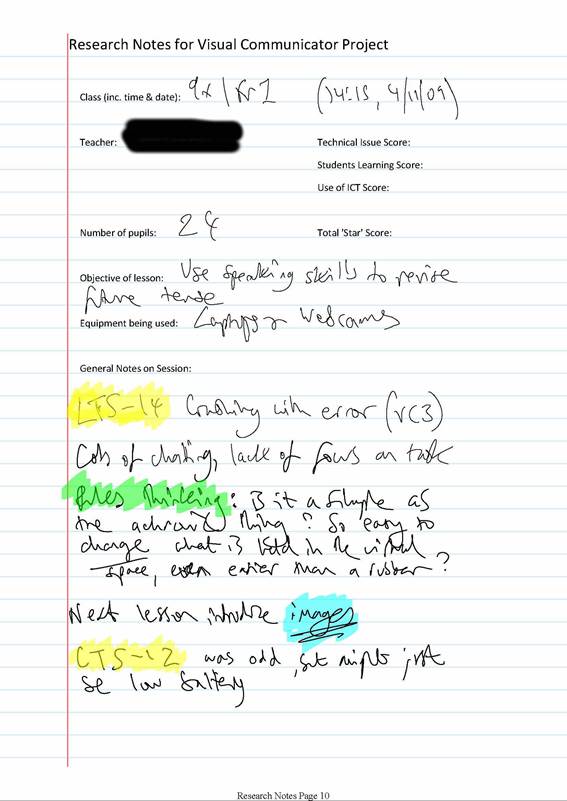 Research Notes for Visual Communicator Project
Class (inc. time & date): 9x/Fr1 (14:15, 4/11/09)
Teacher:
Technical Issue Score:
Students Learning Score:
Use of ICT Score:
Number of pupils: 24
Total 'Star' Score:
Objective of lesson: Use speaking skills to revise
future tense
Equipment being used: Laptops + Webcams
General Notes on Session:
LTS-14 Crashing with error (VC3)
Lots of chatting, lack of focus on task
thinking: Is it a simple as
the thing? So easy to
change what is in the virtual
space, even easier than a rubber?
Next lesson, introduce images
LTS-12 was odd, but might just
be low battery
Research Notes Page 10